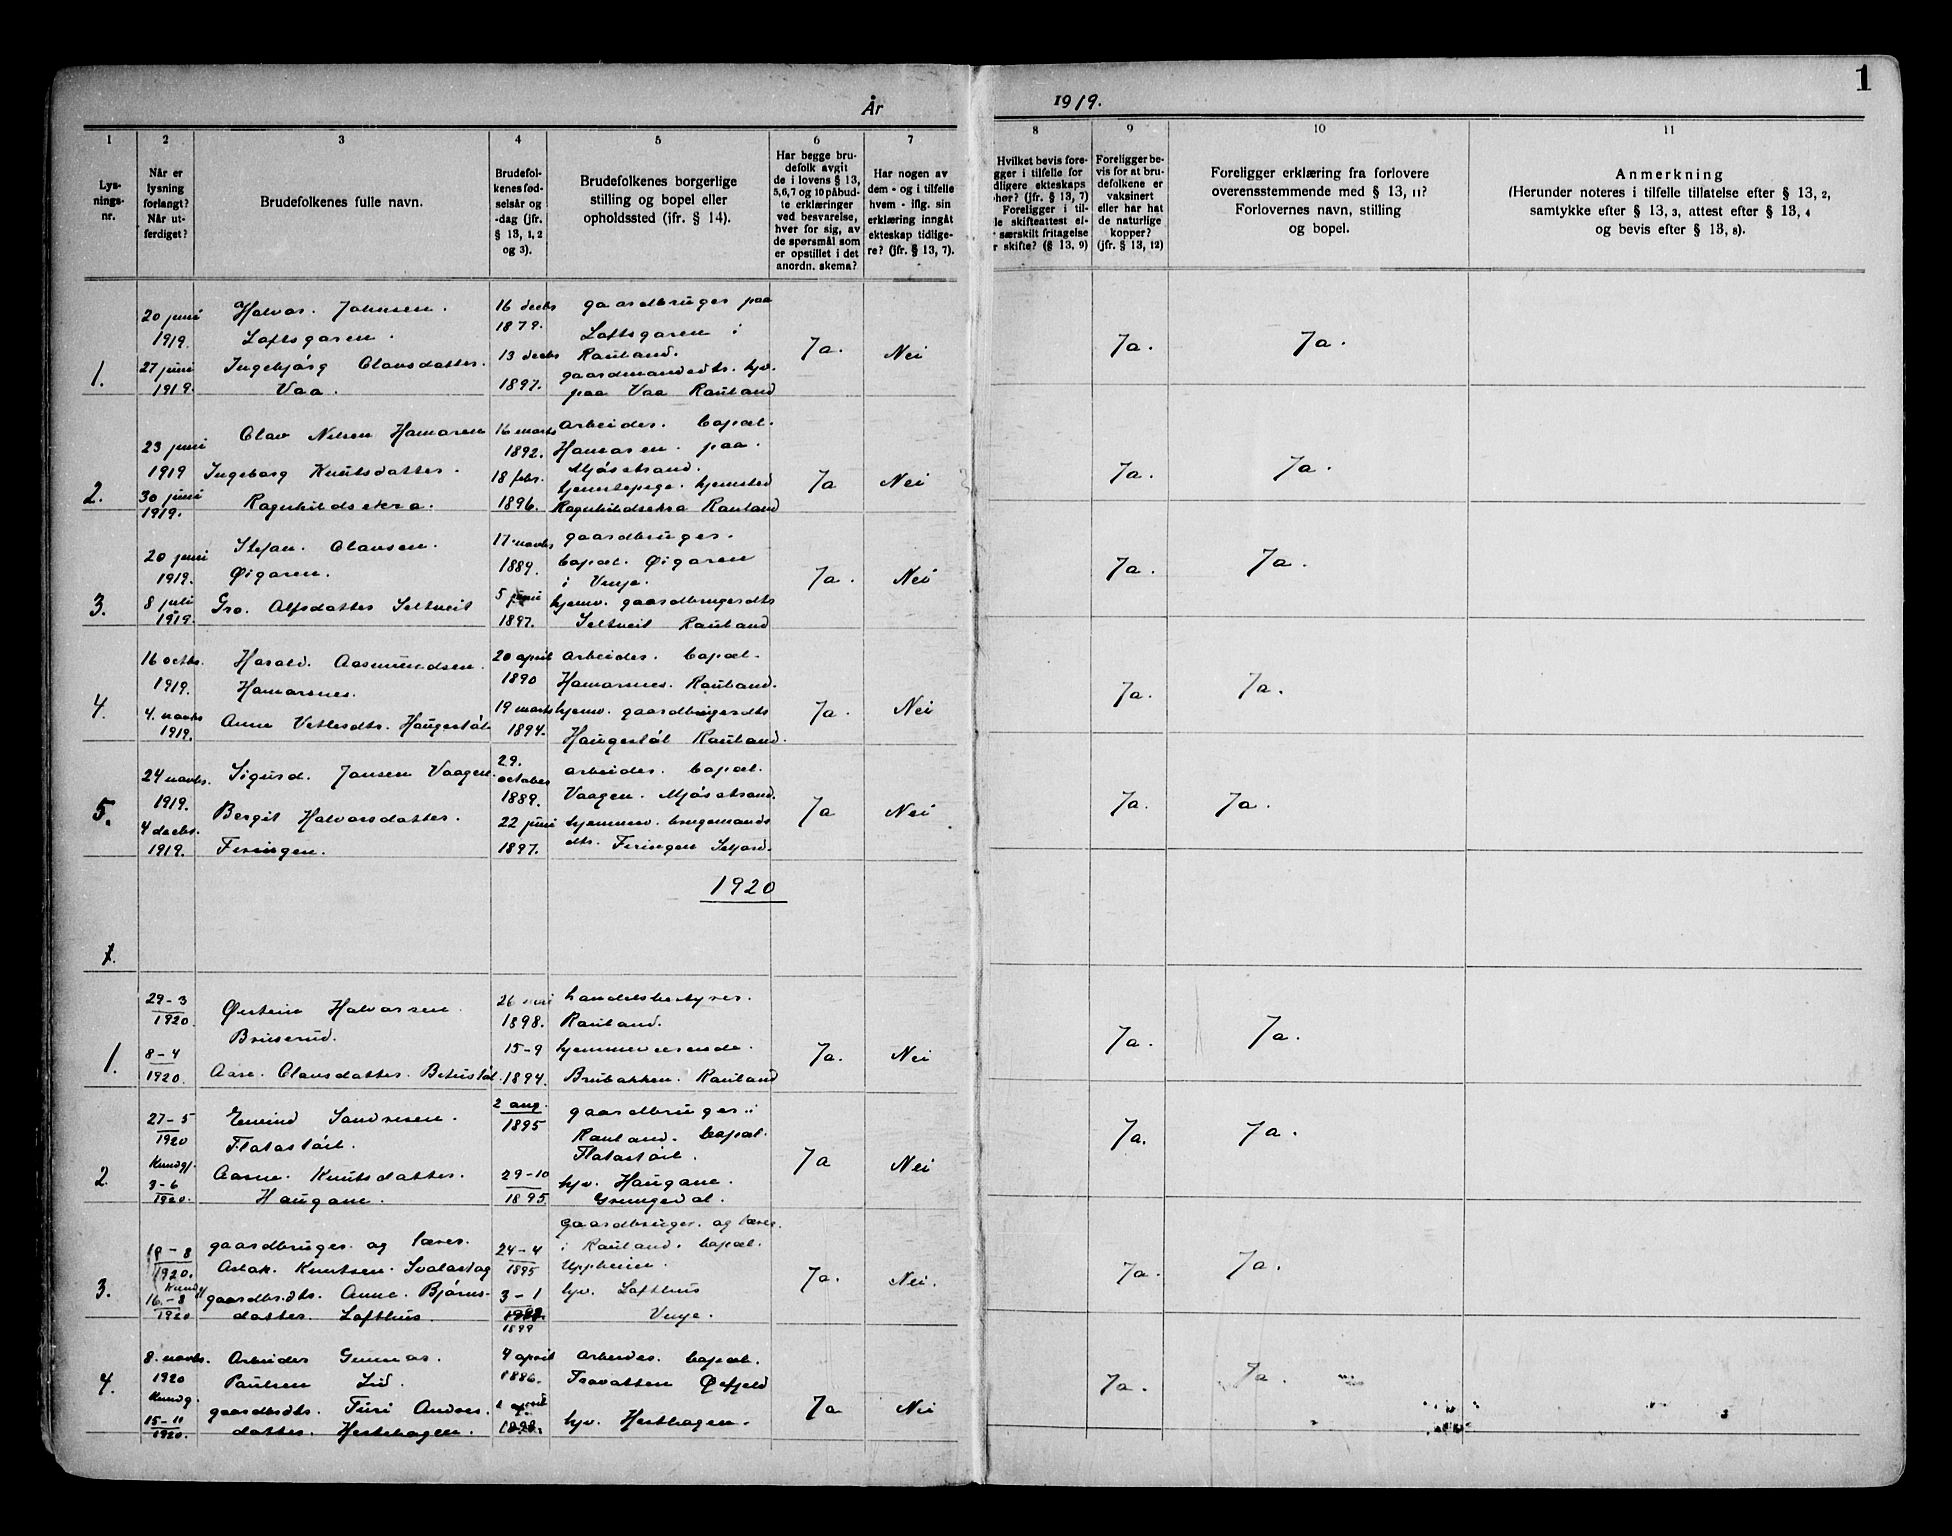 1
År 1919.
1 2 3 4 5 6 7 8 9 10 11
Lys-
nings-
nr.
Når er
lysning
forlangt?
Når ut-
ferdiget?
Brudefolkenes fulle navn.
Brudefol-
kenes fød-
selsår og
-dag (jfr.
§ 13, 1, 2
og 3).
Brudefolkenes borgerlige
stilling og bopel eller
opholdssted (jfr. § 14).
Har begge bru-
defolk avgit
de i lovens § 13,
5,6,7 og 10 påbud-
te erklæringer
ved besvarelse,
hver for sig, av
de spørsmål som
er opstillet i det
anordn. skema?
Har nogen av
dem - og i tilfelle
hvem - iflg. sin
erklæring inngåt
ekteskap tidlige-
re? (jfr. § 13, 7).
Hvilket bevis fore-
gger i tilfelle for
dligere ekteskaps
hør? (jfr. § 13, 7)
Foreligger i til-
le skifteattest el-
særskilt fritagelse
r skifte? (§ 13, 9)
Foreligger be-
vis for at bru-
defolkene er
vaksinert
eller har hat
de naturlige
kopper?
(jfr. § 13, 12)
Foreligger erklæring fra forlovere
overensstemmende med § 13, 11?
Forlovernes navn, stilling
og bopel.
Anmerkning
(Herunder noteres i tilfelle tillatelse efter § 13, 2,
samtykke efter § 13, 3, attest efter § 13, 4
og bevis efter § 13, 8).
1.
20 juni
1919.
27 juni
1919.
Halvor. Johnsen.
Loftsgaren.
Ingebjørg Olavsdatter.
Vaa.
16 decbr
1879.
13 decbr
1897.
gaardbruger paa
Loftsgaren i
Rauland.
gaardmandsdtr. hjv.
paa Vaa Rauland
Ja. Nei Ja. Ja.
2.
23 juni
1919
30 juni
1919.
Olav Nilsen Hamaren
Ingeborg Knutsdatter.
Ragnhildsekra.
16 marts
1892.
18 febr.
1896.
arbeider. bopæl.
Hamaren. paa.
Mjøsstrand.
tjenstepige. hjemsted
Ragnhildsekra Rauland
Ja Nei Ja. Ja.
3.
20 juni
1919.
8 juli
1919.
Stefan. Olavsen.
Øigaren.
Gro. Alfsdatter Seltveit
17. novbr
1889.
5 juni
1897.
gaardbruger.
bopæl. Øigaren
i Vinje.
hjemv. gaardbrugerdtr
Seltveit Rauland
Ja. Nei Ja. Ja.
4.
16 octbr.
1919.
4. novbr
1919.
Harald. Aasmundsen.
Hamarsnes.
Anne Vetlesdtr. Haugestøl
20 april
1890
19 marts
1894.
arbeider. bopæl.
Hamarsnes. Rauland.
hjemv. gaardbrugerdtr
Haugestøl Rauland.
Ja. Nei Ja. Ja.
5.
24 novbr.
1919.
4 decbr.
1919.
Sigurd. Jonsen Vaagen.
Bergit Halvorsdatter.
Firingen.
29.
october
1889.
22 juni
1897.
arbeider. bopæl.
Vaagen. Mjøsstrand.
hjemmev. brugsmands
dtr. Firingen Seljord.
Ja Nei Ja. Ja.
1920
1.
1.
29-3
1920
8-4
1920.
Østein Halvorsen.
Bruserud.
Aase. Olavsdatter. Bitustøl.
26
1898.
15-9
1894.
handelsbestyrer.
Rauland.
hjemmeværende.
Brubakken. Rauland
Ja. Nei Ja. Ja.
2.
27-5
1920
Kundgj.
3-6
1920.
Eivind Sondresen.
Flatastøil.
Aasne. Knutsdatter.
Haugane.
2 aug.
1895
29-10
1895.
gaardbruger i
Rauland. bopæl.
Flatastøil.
hjv. Haugane.
Grungedal.
Ja Nei Ja. Ja.
3.
-8
1920.
Kundgj
16.-8
1920
gaardbruger. og lærer.
Aslak. Knutsen. Svalastog
gaardbr.dtr. Anne. Bjørns-
datter. Lofthus.
24-4
1895
3-1
1899
gaardbruger. og lærer.
i Rauland. bopæl.
Uppheim.
hjv. Lofthus
Vinje.
Ja. Nei. Ja. Ja.
4.
8. novbr.
1920
Kundg.
15-11
1920.
Arbeider Gunnar.
Paulsen Lid.
gaardbrdtr. Turi Andres.
datter. Hestehagen.
4 april
1886.
april
arbeider. bopæl.
Travatten Øfjeld
hjv. Hesthagen.
Ja Nei Ja. Ja.